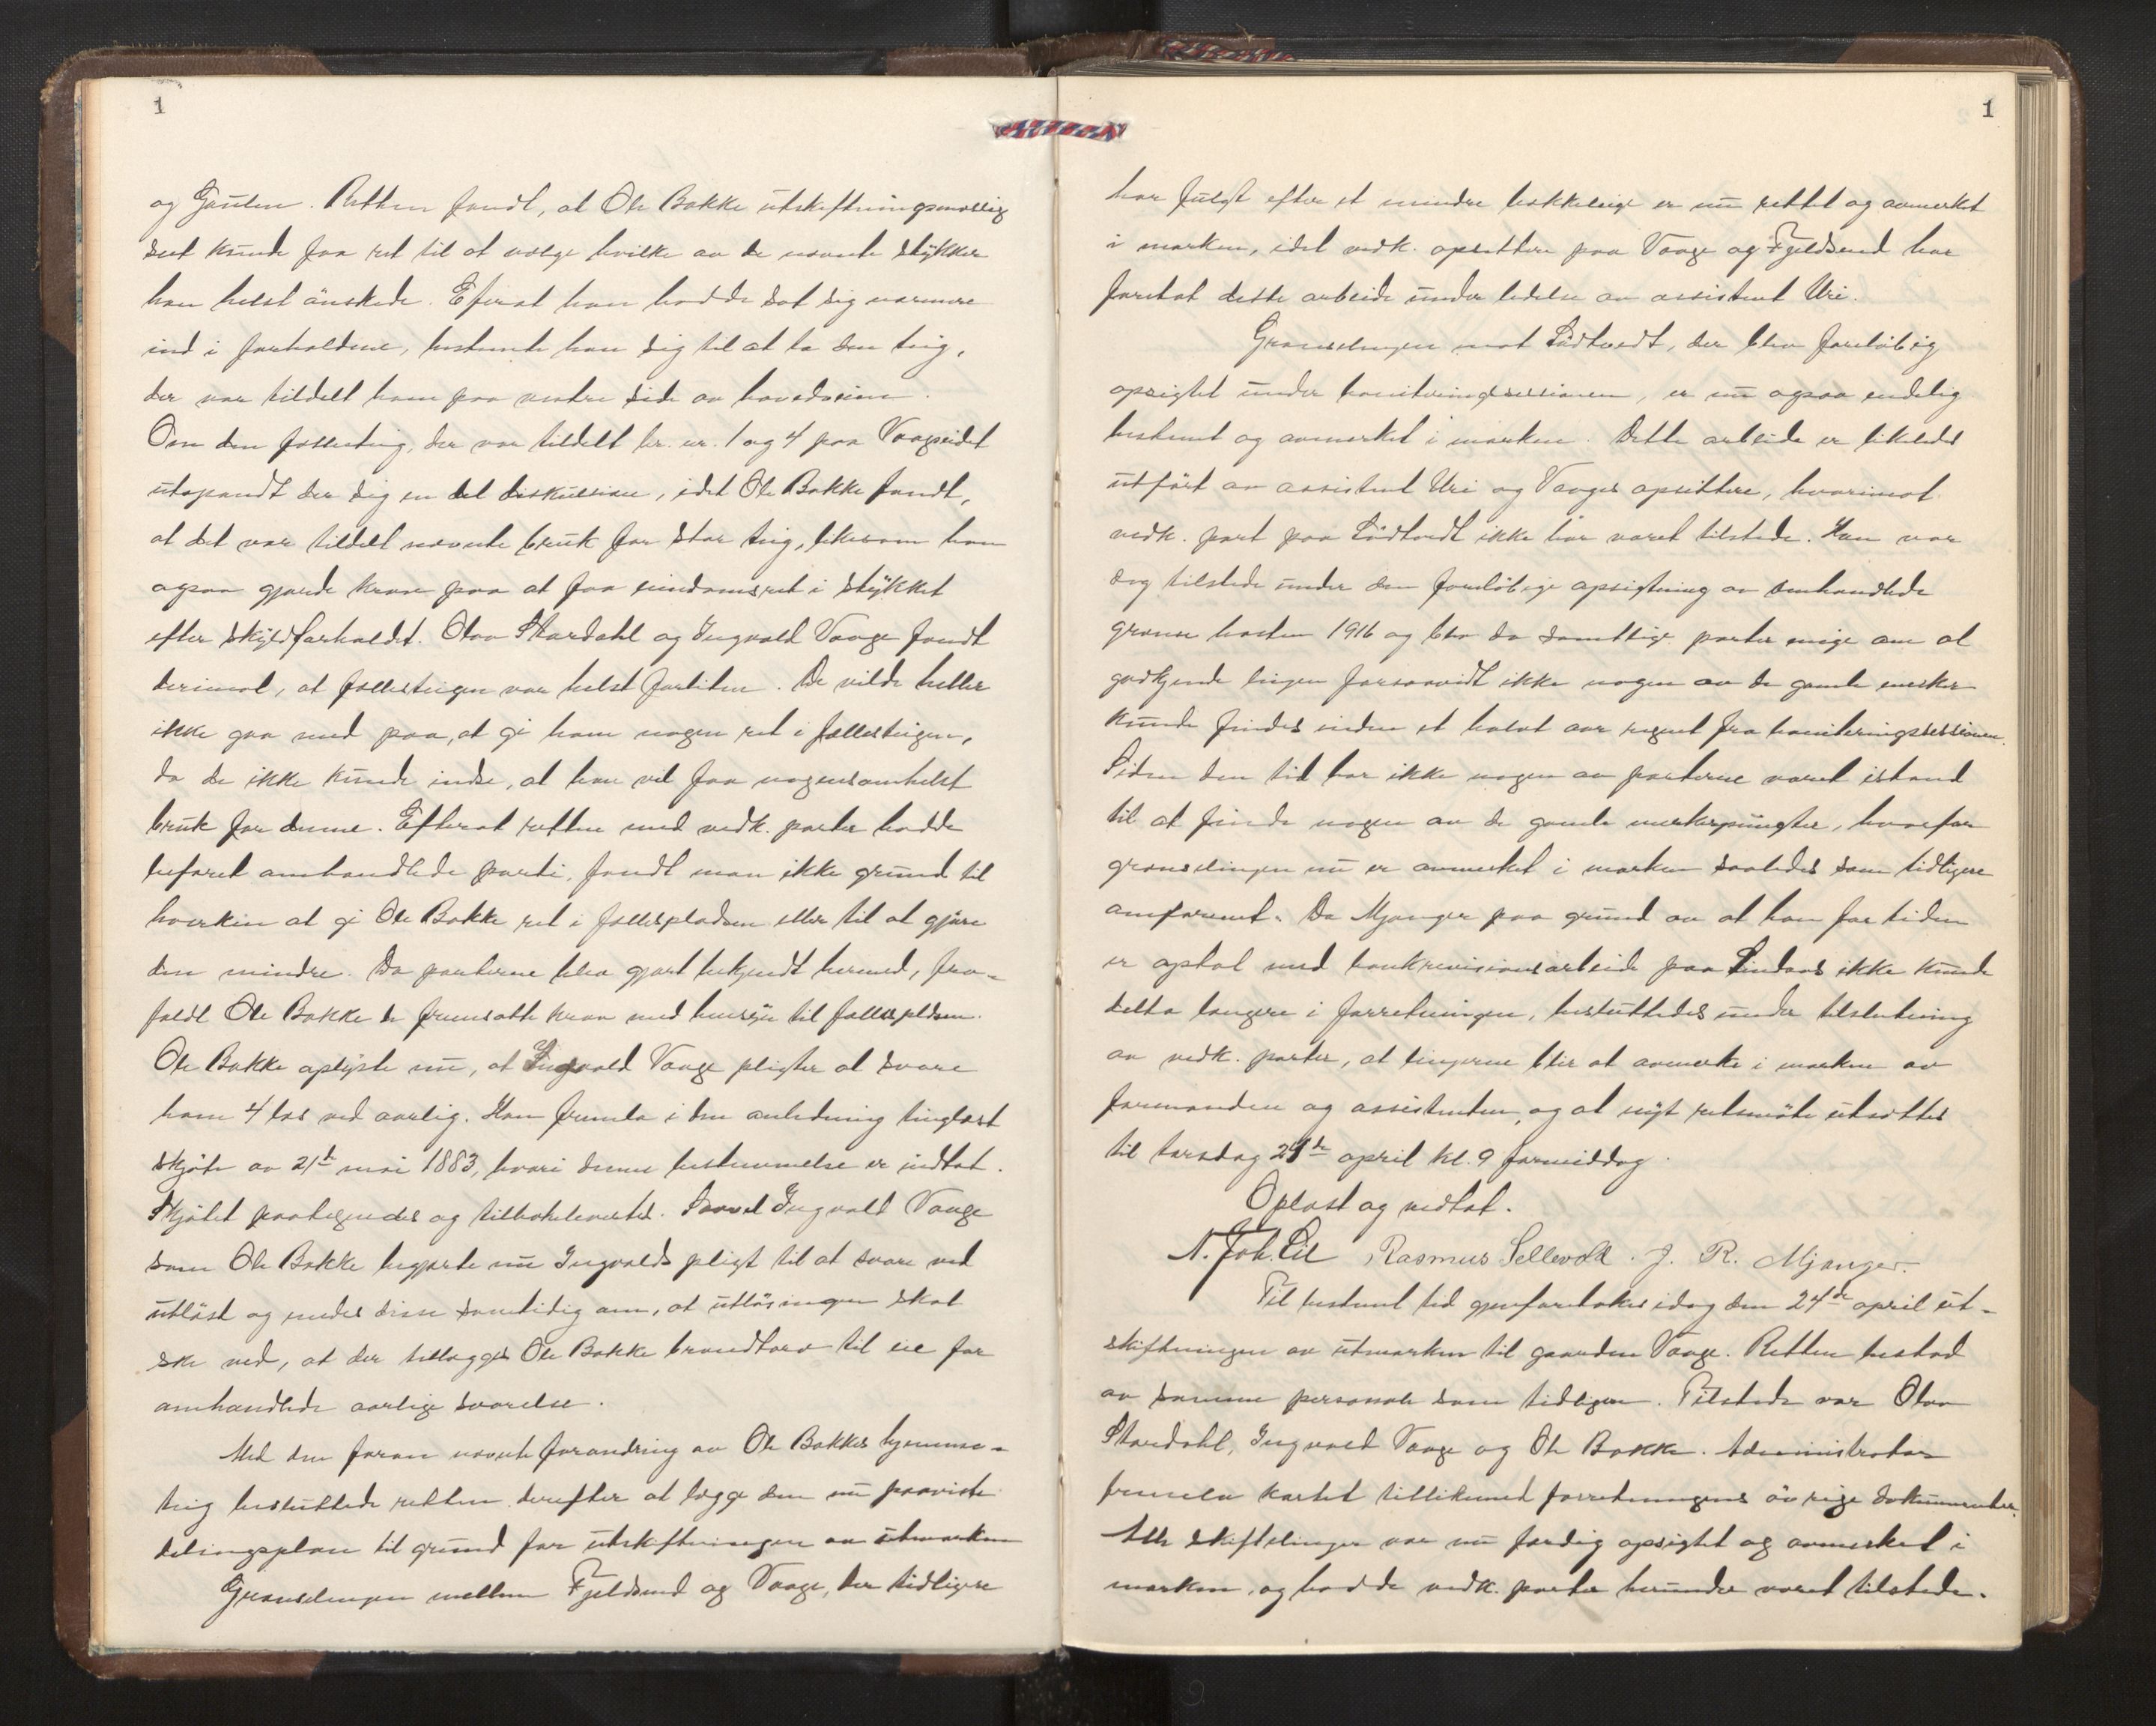 1
og Gaulen. Retten fandt, at Ole Bakke utskiftningsmæssig
set kunde faa ret til at vælge hvilke av de nævnte stykker
han helst ønskede. Efterat han hadde sat sig nærmere
ind i forholdene, bestemte han sig til at ta den teig,
der var tildelt ham paa vestre side av hovedveien.
Om den fællesteig, der var tildelt br. nr. 1 og 4 paa Vaageidet
utspandt der sig en del diskussion, idet Ole Bakke fandt,
at det var tildelt nævnte bruk for stor teig, likesom han
ogsaa gjorde krav paa at faa eiendomsret i stykket
efter skyldforholdet. Olav Stardahl og Ingvald Vaage fandt
derimot, at fællesteigen var helst forliten. De vilde heller
ikke gaa med paa, at gi ham nogen ret i fællesteigen,
da de ikke kunde indse, at han vil faa nogensomhelst
bruk for denne. Efterat retten med vedk. parter hadde
befaret omhandlede parti, fandt man ikke grund til
hverken at gi Ole Bakke ret i fællespladsen eller til at gjøre
den mindre. Da parterne blev gjort bekjendt hermed, fra-
faldt Ole Bakke de fremsatte krav med hensyn til fællespldsen.
Ole Bakke oplyste nu, at Ingvald Vaage pligter at svare
ham 4 læs ved aarlig. Han fremla i den anledning tinglæst
skjøte av 21de mai 1883, hvori denne bestemmelse er indtat.
Skjøtet paategnedes og tilbakelevertes. Saavel Ingvald Vaage
som Ole Bakke begjærte nu Ingvalds pligt til at svare ved
utløst og enedes disse samtidig om, at utløsningen skal
ske ved, at der tillægges Ole Bakke brandtorv til eie for
omhandlede aarlige svarelse.
Med den foran nævnte forandring av Ole Bakkes hjemme-
teig besluttede retten derefter at lægge den nu paaviste
delingsplan til grund for utskiftningen av utmarken
Grænselinjen mellem Fjeldsend og Vaage, der tidligere
1
har fulgt efter et mindre bækkeleie er nu rettet og avmerket
i marken, idet vedk. opsittere paa Vaage og Fjeldsend har
foretat dette arbeide under ledelse av assistent Uri.
Grænselinjen mot Lødtvedt, der blev foreløbig
opsigtet under boniteringssessionen, er nu ogsaa endelig
bestemt og avmerket i marken. Dette arbeide er likeledes
utført av assistent Uri og Vaages opsittere, hvorimot
vedk. part paa Lødtvedt ikke har været tilstede. Han var
dog tilstede under den foreløbige opsigtning av omhandlede
grænse høsten 1916 og blev da samtlige parter enige om at
godkjende linjen forsaavidt ikke nogen av de gamle merker
kunde findes inden et halvt aar regnet fra boniteringssessionen.
Siden den tid har ikke nogen av parterne været istand
til at finde nogen av de gamle merkerpungter, hvorfor
grænselinjen nu er avmerket i marken saaledes som tidligere
omforenet. Da Mjanger paa grund av at han for tiden
er optat med bankrevisionsarbeide paa Lindaas ikke kunde
delta længere i forretningen, besluttedes under tilslutning
av vedk. parter, at linjerne blir at avmerke i marken av
formanden og assistenten, og at nyt retsmøte utsættes
til torsdag 24de april kl. 9 formiddag.
Oplæst og vedtat.
N. Joh. Lil Rasmus Sellevold. J. R. Mjanger.
Til bestemt tid gjenforetokes idag den 24de april ut-
skiftningen av utmarken til gaarden Vaage. Retten bestod
av samme personale som tidligere. Tilstede var Olav
Stardahl, Ingvald Vaage og Ole Bakke. Administrator
fremla kartet tillikemed forretningens øvrige dokumenter.
Alle skiftelinjer var nu færdig opsigtet og avmerket i
marken, og hadde vedk. parter herunder været tilstede.